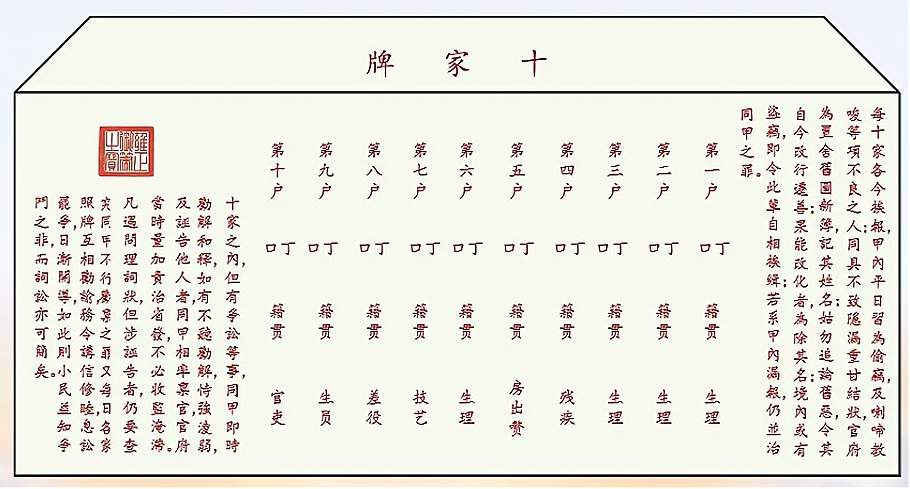 十家牌
每十家各今挨報,甲內平日習為偷竊,及喇啼教
唆等項不良之人;同具不致隱漏重甘結狀,官府
為置舍舊圖新簿,記其姓名;姑勿追論舊惡,令其
自今改行遷善;果能改化者,為除其名;境內或有
盜竊,即令此輩自相挨緝;若系甲內漏報,仍並治
同甲之罪。
第一户 丁口 籍贯 生理
第二户 丁口 籍贯 生理
第三户 丁口 籍贯 生理
第四户 丁口 籍贯 残疾
第五户 丁口 籍贯 房出赘
第六户 丁口 籍贯 生理
第七户 丁口 籍贯 技艺
第八户 丁口 籍贯 差役
第九户 丁口 籍贯 生员
第十户 丁口 籍贯 官吏
十家之內,但有爭訟等事,同甲即時
勸解和釋,如有不聽勸解,恃強淩弱,
及誣告他人者,同甲相率稟官,官府
當時量加責治省發,不必收監淹滯。
凡遇問理詞狀,但涉誣告者,仍要查
究同甲不行勸稟之罪又每日各家
照牌互相勸諭,務令講信修睦,息訟
罷爭,日漸開導,如此則小民益知爭
鬥之非,而詞訟亦可簡矣。
雍正御筆之寶